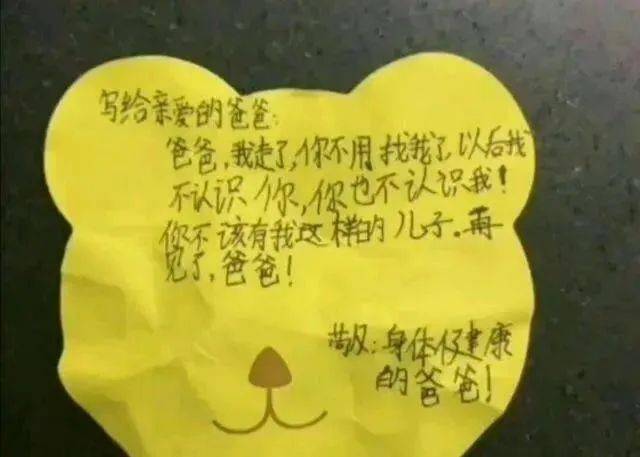 写给亲爱的爸爸:
爸爸,我走了,你不用找我了以后我
不认识你,你也不认识我!
你不该有我这样的儿子。再
见了,爸爸!
敬:身体健康
的爸爸!